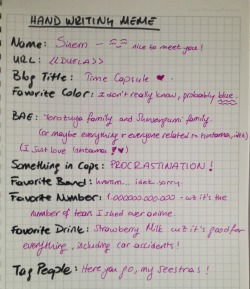 HAND WRITING MEME
Name: Sinem - nice to meet you!
URL:
Blog Title: Time Capsule ♥.
Favorite Color: I don't really know, probably blue.
BAE: Yorozuya family and Shinsengumi family.
(or maybe everything & everyone related to Gintama, idk)
(I just love Gintama ♥)
Something in Caps: PROCRASTINATION!
Favorite Band: hmmm.. idek sorry.
Favorite Number: 1.000000.000.000 - cuz it's the
number of tears I shed over anime.
Favorite Drink: Strawberry Milk cuz it's good for
everything, including car accidents!
Tag People: Here you go, my seestras!